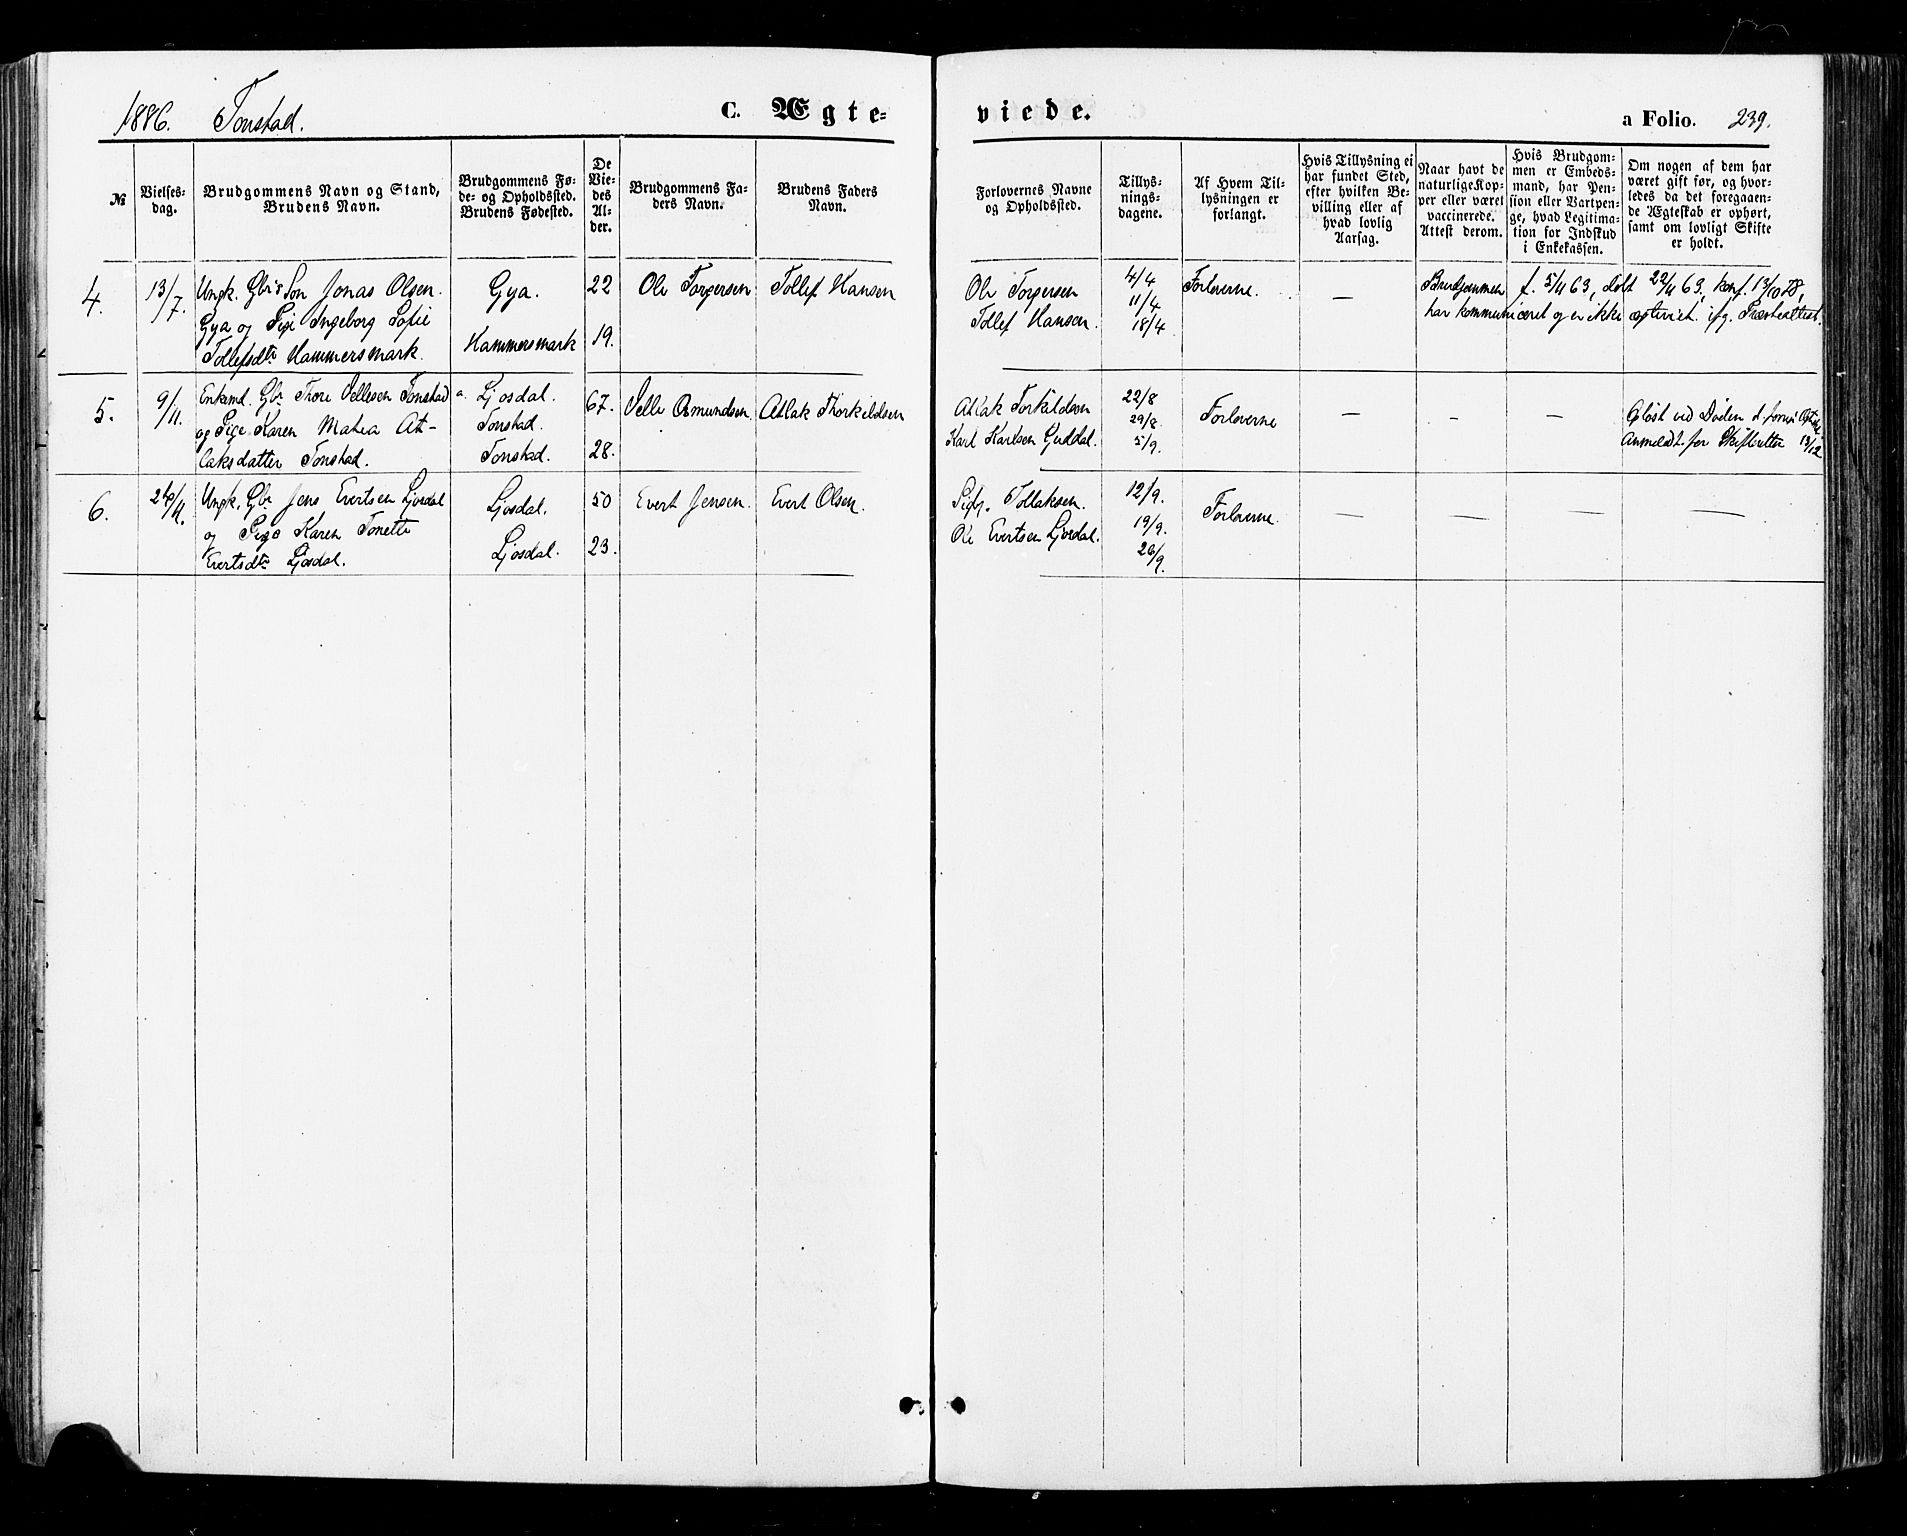 1886. Tonstad.
C. Ægte-
viede.
a Folio. 239.
№
Vielses-
dag.
Brudgommens Navn og Stand,
Brudens Navn.
Brudgommens Fø-
de- og Opholdssted.
Brudens Fødested.
De
Vie-
des
Al-
der.
Brudgommens Fa-
ders Navn.
Brudens Faders
Navn.
Forlovernes Navne
og Opholdssted.
Tillys-
nings-
dagene.
Af Hvem Til-
lysningen er
forlangt.
Hvis Tillysning ei
har fundet Sted,
efter hvilken Be-
villing eller af
hvad lovlig
Aarsag.
Naar havt de
naturlige Kop-
per eller været
vaccinerede.
Attest derom.
Hvis Brudgom-
men er Embeds-
mand, har Pen-
sion eller Vartpen-
ge, hvad Legitima-
tion for Indskud
i Enkekassen.
Om nogen af dem har
været gift før, og hvor-
ledes da det foregaaen-
de Ægteskab er ophørt,
samt om lovligt Skifte
er holdt.
4.
13/7.
Ungk. Gbr's Søn Jonas Olsen
Gya og Pige Ingeborg Sofie
Tollefsdtr Hammersmark.
Gya.
Hammersmark
22
19.
Ole Torgersen
Tollef Hansen
Ole Torgersen
Tollef Hansen.
4/4
11/4
18/4
Forloverne.
—
Brudgommen f. 5/11 63, døbt 22/11 63, konf. 13/10 78,
har kommuniceret og er ikke ægteviet. ifg. Præsteattest.
5.
9/11.
Enkemd. Gbr Thore Vellesen Tonstad
og Pige Karen Matea At-
laksdatter Tonstad.
a. Ljosdal.
Tonstad.
Tonstad.
67.
28.
Velle Osmundsen.
Atlak Thorkildsen
Atlak Torkildsen
Karl Karlsen Guddal.
22/8
29/8.
5/9.
Forloverne
— — —
Opløst ved Døden
Anmeldt for Skifteretten 13/12
6.
26/11.
Ungk. Gbr Jens Evertsen Ljosdal
og Pige Karen Tonette
Evertsdtr Ljosdal.
Ljosdal.
Ljosdal.
50
23.
Evert Jensen.
Evert Olsen.
Sigb. Tollaksen.
Ole Evertsen Ljosdal.
12/9.
19/9.
26/9.
Forloverne.
— — — —